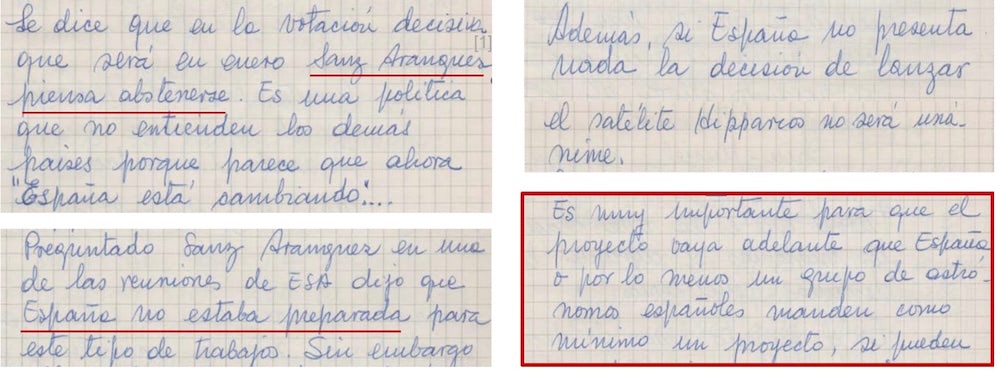 Se dice que en la votación decisiva
[1]
que será en enero Sanz Aranguez
piensa abstenerse. Es una política
que no entienden los demás
países porque parece que ahora
"España está cambiando"....
Preguntado Sanz Aranguez en una
de las reuniones de ESA dijo que
España no estaba preparada para
este tipo de trabajos. Sin embargo
Además, si España no presenta
nada la decisión de lanzar
el satélite Hipparcos no será uná-
nime.
Es muy importante para que el
proyecto vaya adelante que España
o por lo menos un grupo de astró-
nomos españoles manden como
mínimo un proyecto, si pueden